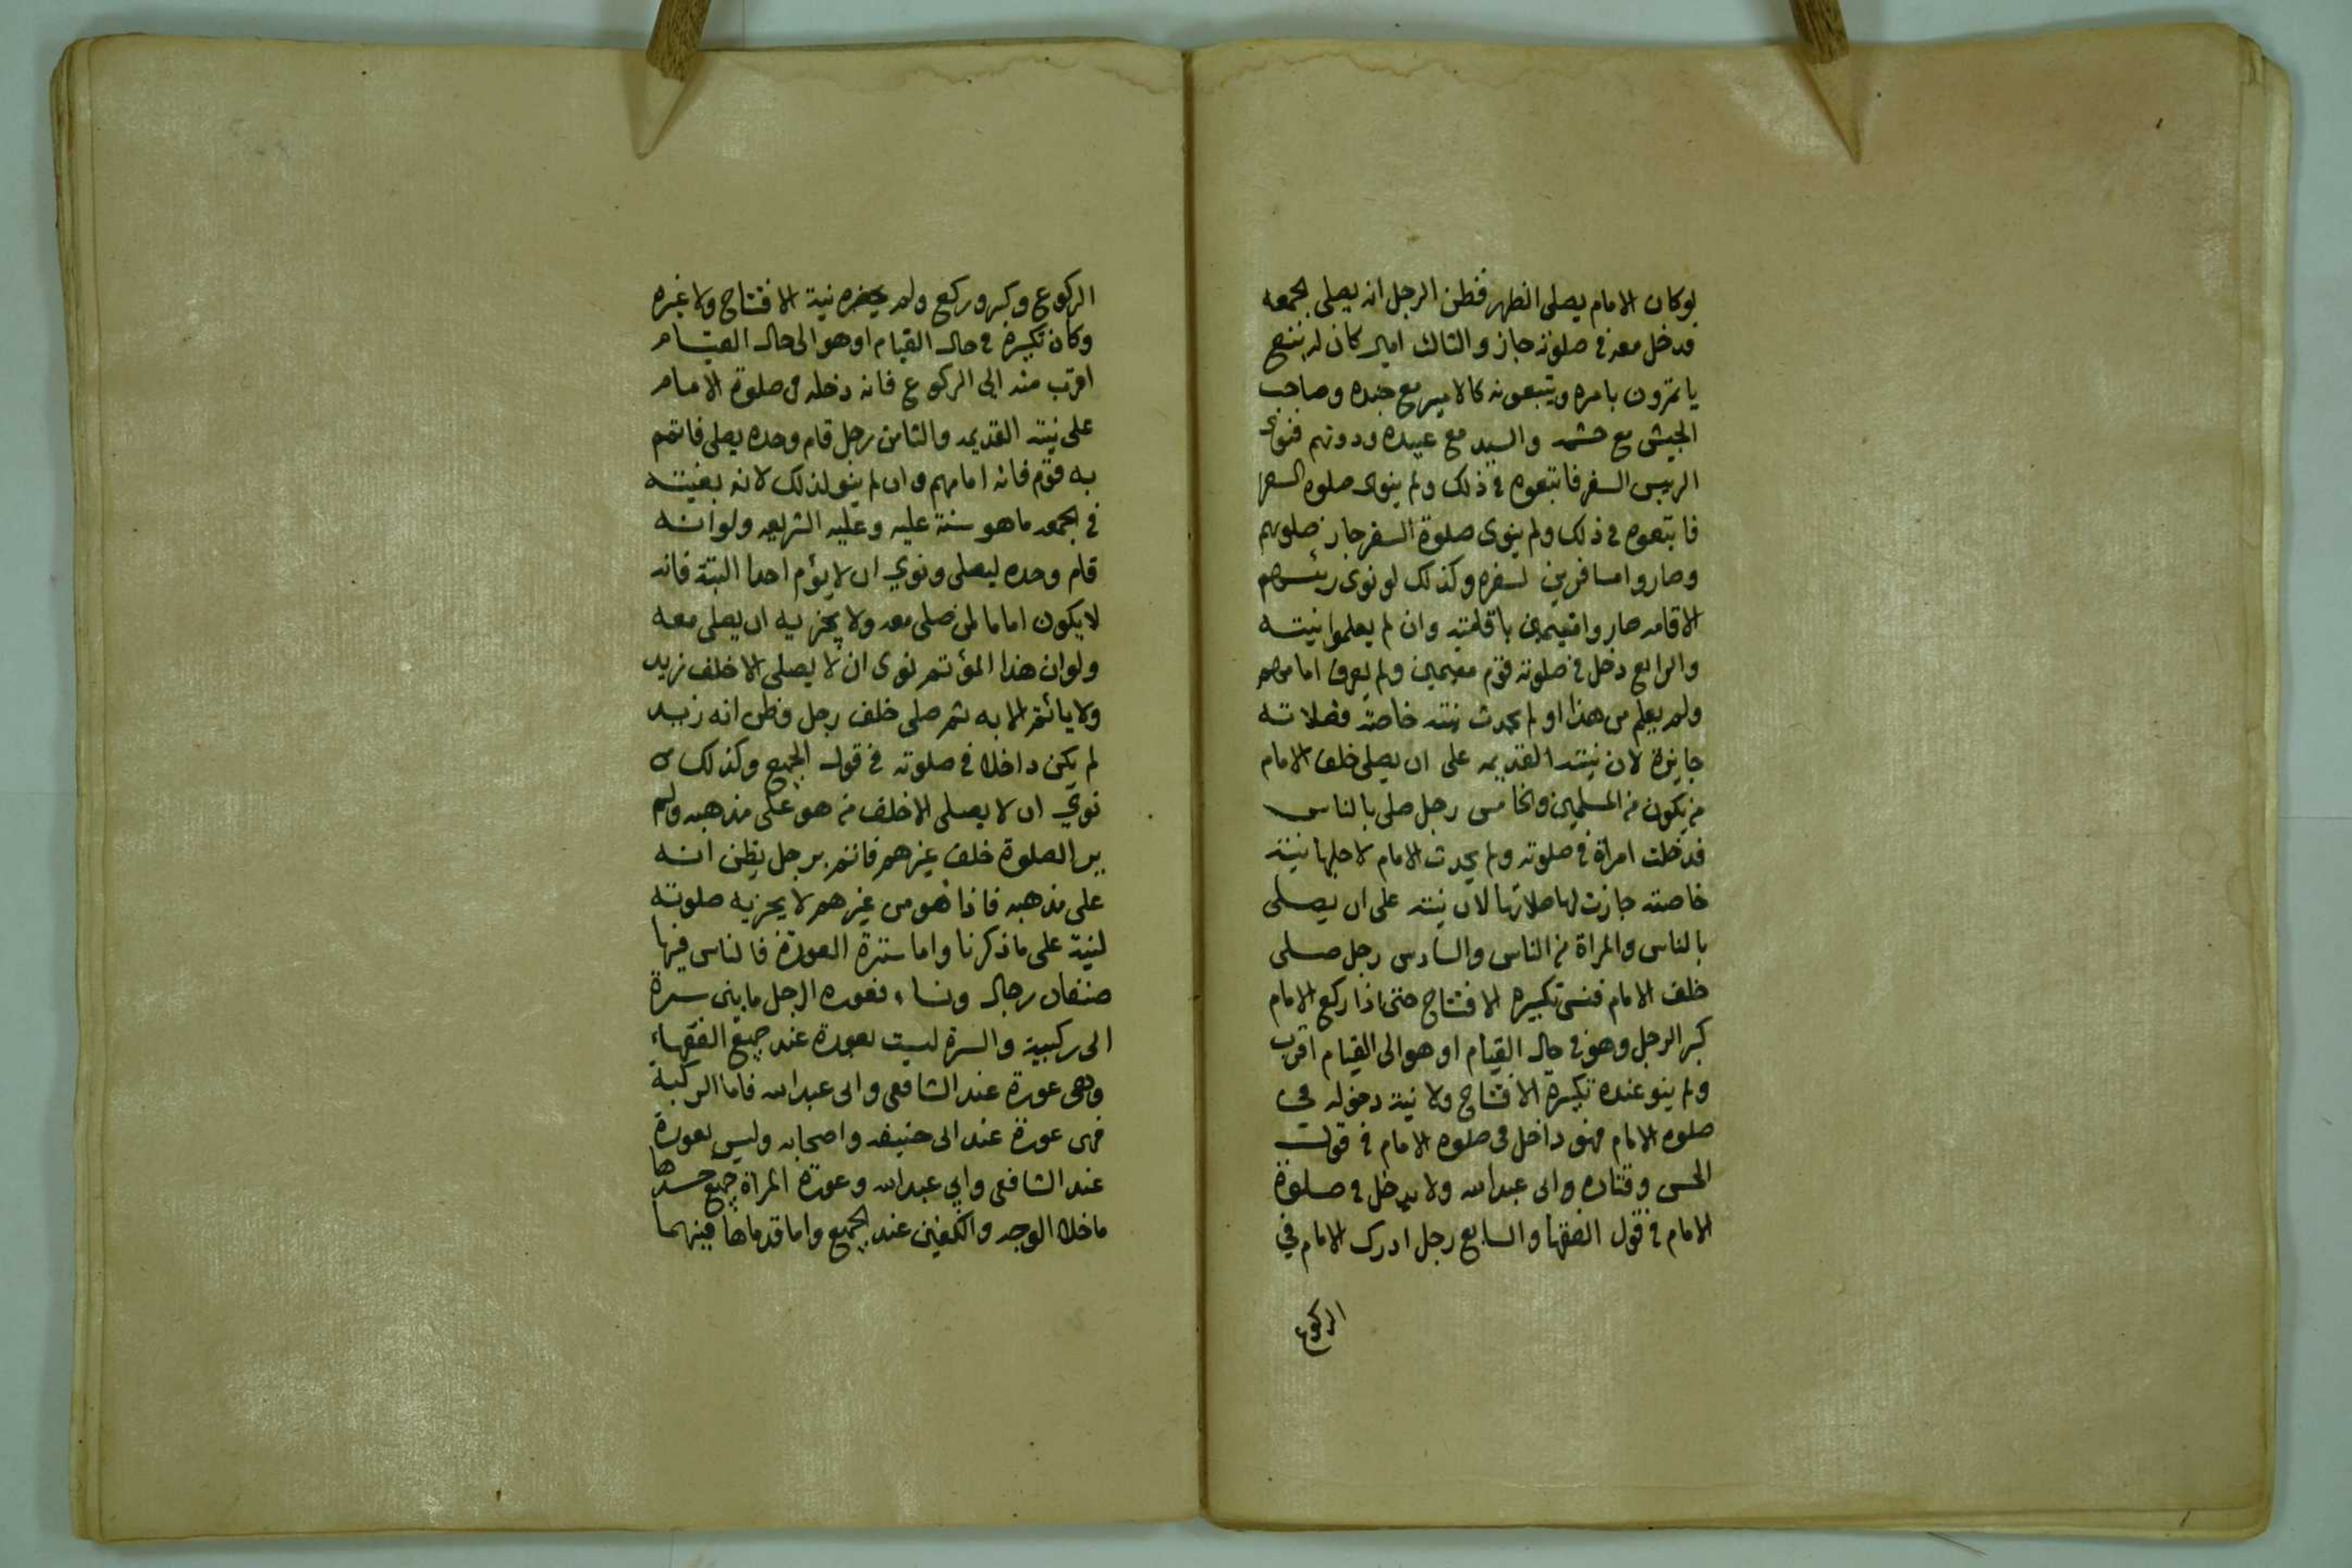 لوكان الامام يصلى الظهر فظن الرجل انه يصلى الجمعه
فدخل معه في صلوته جاز والثالث امير كان له
ياتمرون بامره ويتبعونه كالامير مع جنده وصاحب
الجيش مع حشمه والسيد مع عبيده ودونهم فنوى
الرييس السفر فاتبعوه في ذلك ولم ينوى صلوه السفر
فاتبعوه في ذلك ولم ينوى صلوة السفر جاز صلوتهم
وصاروا مسافرين لسفره وكذلك لو نوى رئيسهم
الاقامه صاروا مقيمين باقامته وان لم يعلموا نيته
والرابع دخل في صلوته قوم مقيمين ولم يعرف امامهم
ولم يعلم من هذا او لم يحدث نيته خاصة فصلاته
جايزة لان نيته القديمه على ان يصلى خلف الامام
من يكون من المسلمين والخامس رجل صلى بالناس
فدخلت امراة في صلوته ولم يحدث الامام لاجلها نيته
خاصته جازت لها صلاتها لان نيته على ان يصلى
بالناس والمراة من الناس والسادس رجل صلى
خلف الامام فنسى تكبيره الافتتاح حتى اذا ركع الامام
كبر الرجل وهو في حال القيام او هو الى القيام اقرب
ولم ينو عنده تكبيرة الافتتاح ولا نية دخوله في
صلوه الامام فهو داخل في صلوه الامام في قول
الحسن وقتاده وابى عبدالله ولا يدخل في صلوة
الامام في قول الفقها والسابع رجل ادرك الامام في
الركوع
الركوع وكبر وركع ولم يحضره نية الافتتاح ولا غيره
وكان تكبيرة في حال القيام او هو الى حال القيام
اقرب منه الى الركوع فانه دخله في صلوة الامام
على نيته القديمه والثامن رجل قام وحده يصلى فاتمم
به قوم فانه امامهم وان لم ينو لذلك لانه
في الجمعه ما هو سنة عليه وعليه الشريعه ولو انه
قام وحده ليصلى ونوي ان لا يؤم احدا البتة فانه
لا يكون اماما لمن صلى معه ولا يجزيه ان يصلى معه
ولو ان هذا المؤتم نوى ان لا يصلى الا خلف زيد
ولا يائتم الا به ثم صلى خلف رجل وظن انه زيد
لم يكن داخلا في صلوته في قول الجميع وكذلك من
نوي ان لا يصلى الا خلف من هو على مذهبه ولم
ير الصلوة خلف غيرهم فائتم برجل يظن انه
على مذهبه فاذا هو من غيرهم لا يجزيه صلوته
لنية على ما ذكرنا واما سترة العورة فالناس فيها
صنفان رجال ونساء فعوره الرجل ما بين سرة
الى ركبية والسرة ليست بعورة عند جميع الفقهاء
وهى عورة عند الشافعى وابى عبدالله فاما الركبة
فهى عورة عند ابى حنيفه واصحابه وليس بعورة
عند الشافعى وابي عبدالله وعورة المراة جميع جسدها
ما خلا الوجه والكفين عند الجميع واما قدماها فبينهما